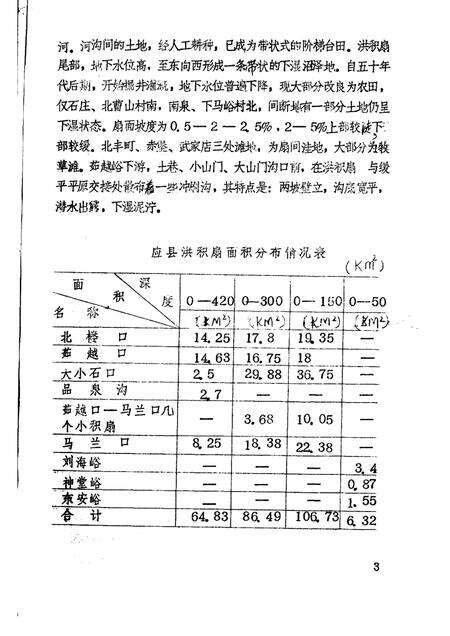 河。河沟间的土地，经人工耕种，已成为带状式的阶梯台田。洪积扇
尾部，地下水位高，至东向西形成一条带状的下湿沼泽地。自五十年
代后期，开始掘井灌溉，地下水位普遍下降，现大部分改良为农田，
仅石庄、北曹山村南，南泉、下马峪村北，间断地有一部分土地仍呈
下湿状态。扇面坡度为0.5—2—2.5%，2—5%上部较陡下
部较缓。北丰町、赤堡、武家店三处滩地，为扇间洼地，大部分为牧
草滩。茹越峪下游，土巷、小山门、大山门沟口前，在洪积扇 与缓
平平原交接处散布着一些冲刷沟，其特点是：两坡壁立，沟底宽平，
潜水出露，下湿泥泞。
应县洪积扇面积分布情况表
(KM²)
面 积 深 度 名 称 0—420 0—300 0—150 0—50
(KM²) (KM²) (KM²) (KM²)
北楼口 14.25 17.8 19.35 —
茹越口 14.63 16.75 18 —
大小石口 2.5 29.88 36.75 —
品泉沟 2.7 — — —
茹越口—马兰口几
个小积扇 — 3.68 10.05 —
马兰口 8.25 18.38 22.38 —
刘海峪 — — — 3.4
神堂峪 — — — 0.87
东安峪 — — — 1.55
合计 64.83 86.49 106.73 6.32
3